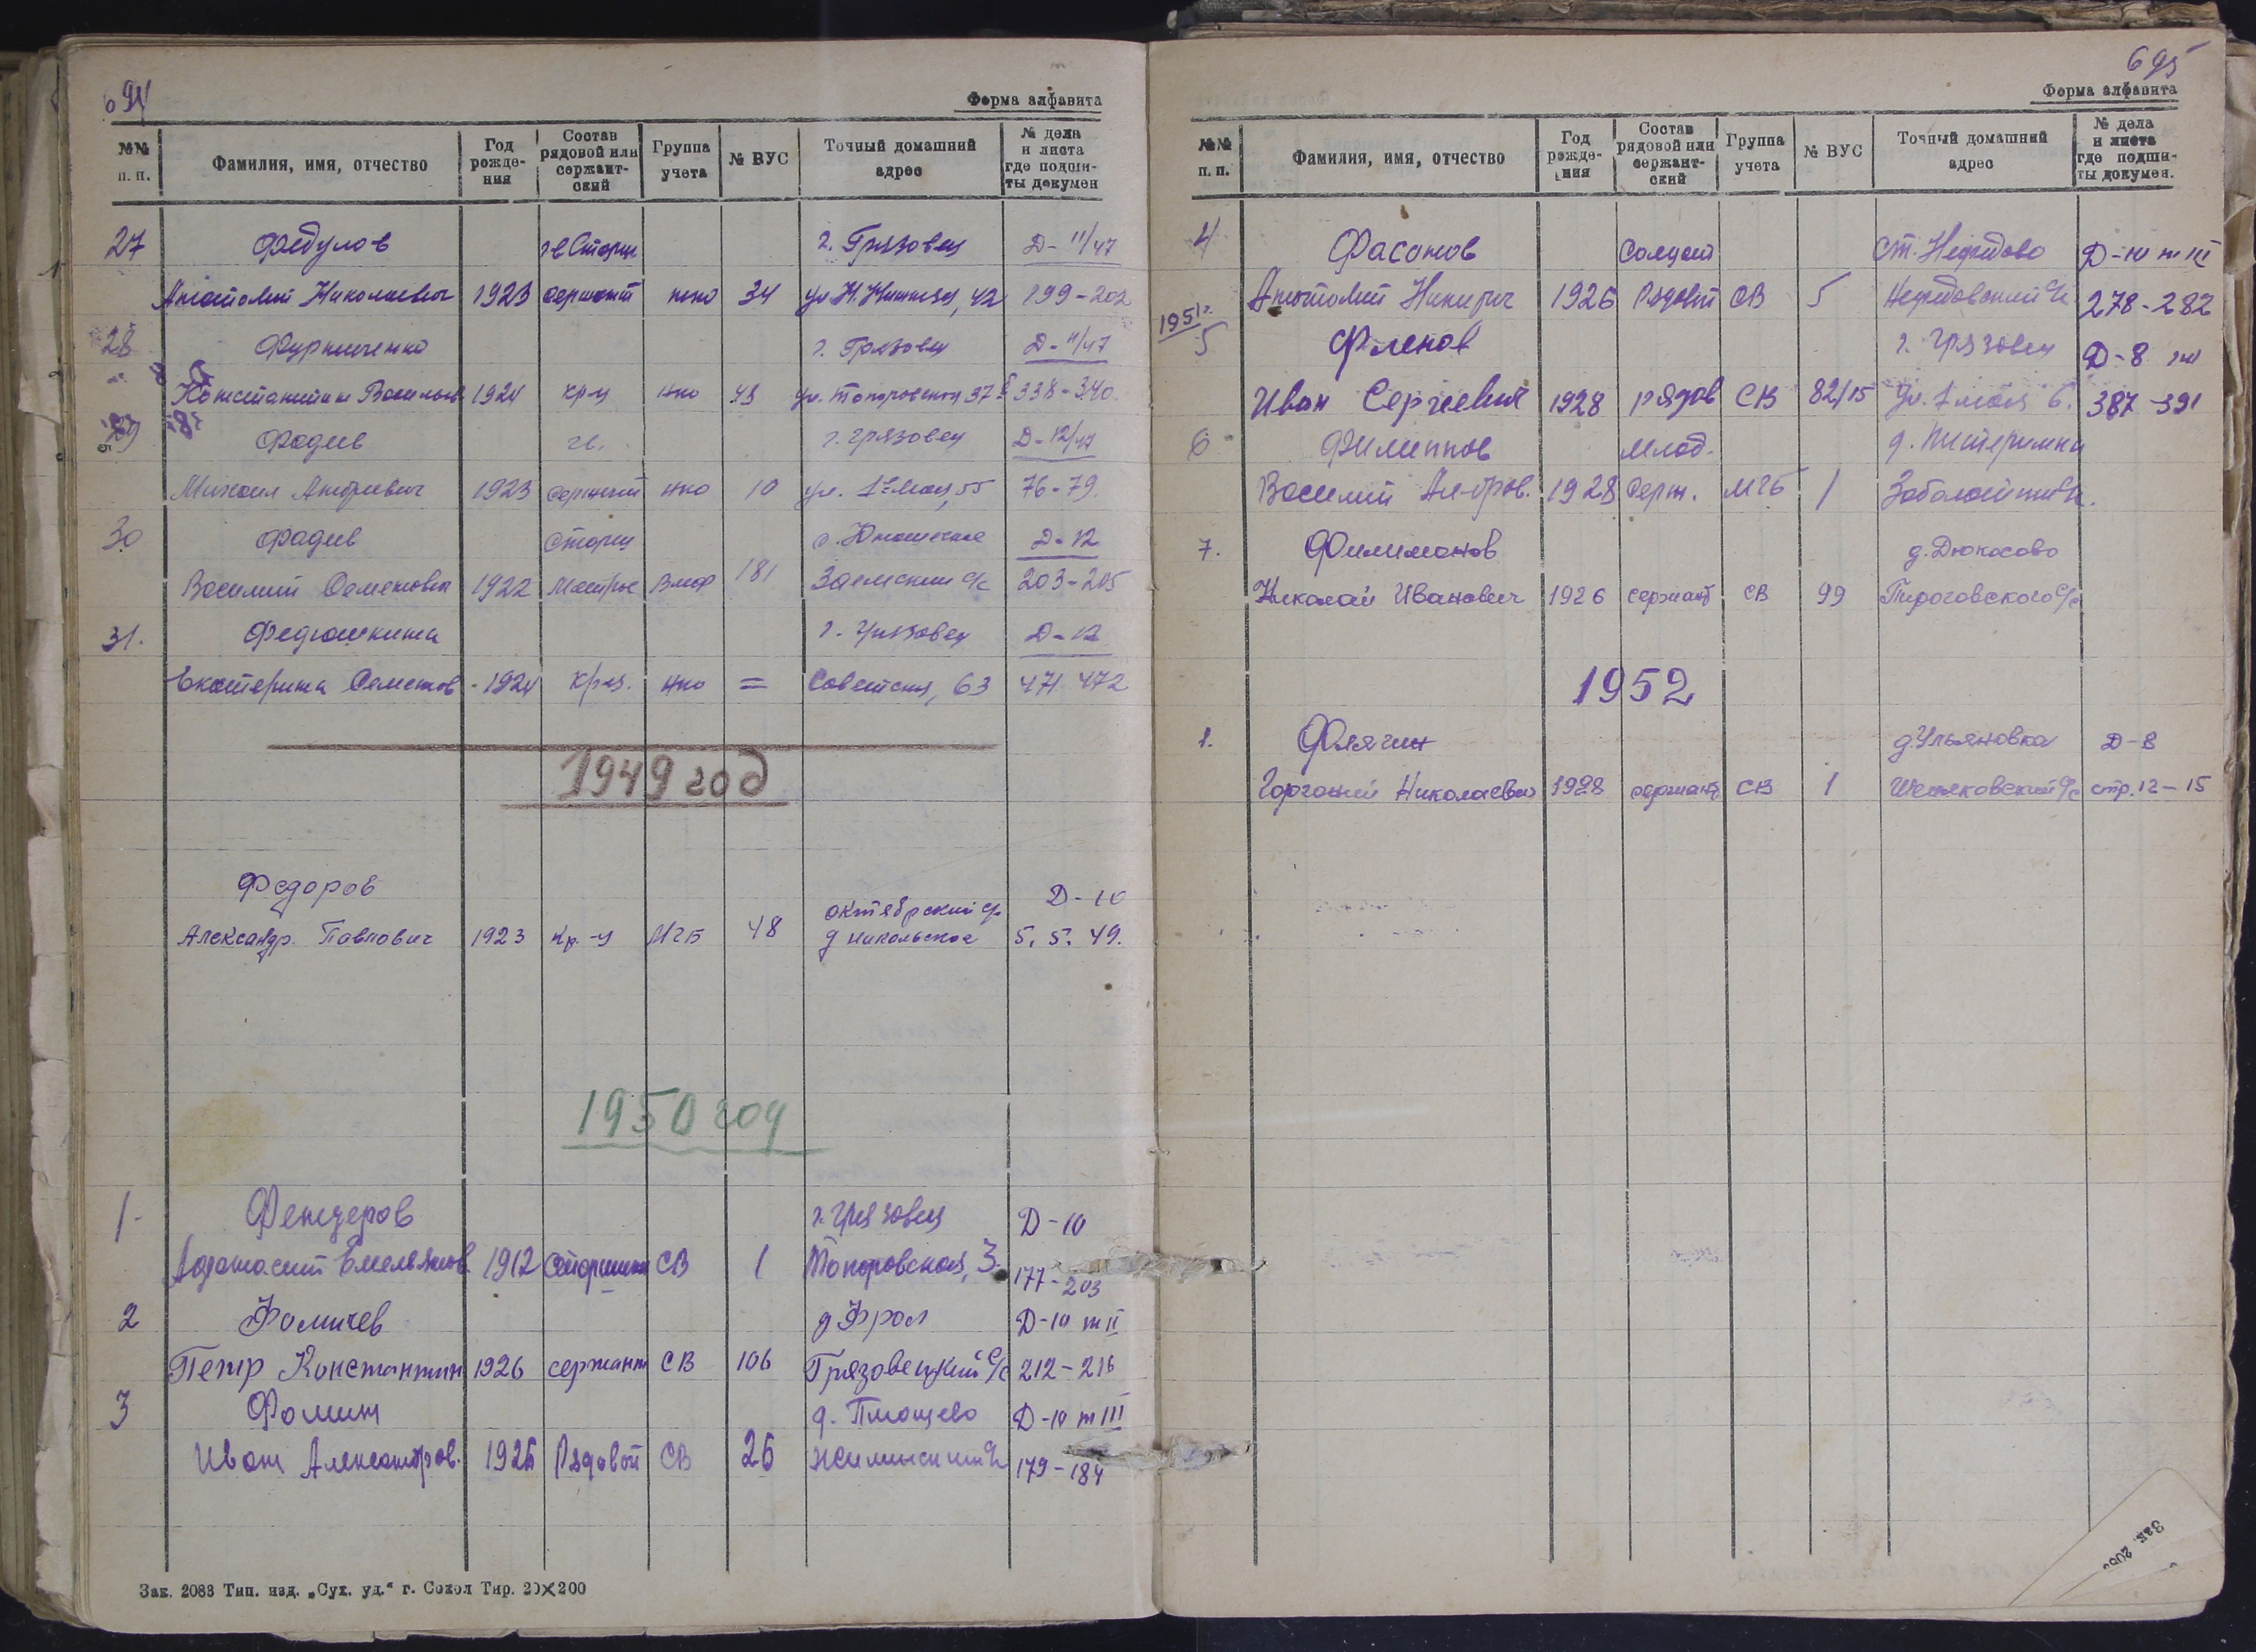 694
Форма алфавита
№№ п. п. Фамилия, имя, отчество Год рожде- ния Состав рядовой или сержант- ский Группа учета № ВУС Точный домашний адрес № дела и листа где подши- ты докумен
27 Федулов гв Старш г. Грязовец Д-11/47
Анатолий Николаевич 1923 сержант нко 34 42 199-202
28 г. Грязовец Д-11/47
Константин Васильев 1924 кр-ц нко 43 ул. Топоровская 37 338-340.
29 Фадеев гв. г. Грязовец Д-12/47
Михаил Андреевич 1923 сержант нко 10 ул. 1е Мая, 55 76-79.
30 Фадеев Старш Д-12
Василий Семенович 1922 Матрос Вмф 181 Заемский с/с 203-205
31. Федюшкина г. Грязовец Д-12
Екатерина Семенов - 1924 кр-ц. нко = Советская, 63 471-472
1949 год
Федоров Октябрский с/с Д-10
Александр. Павлович 1923 Кр.-ц МГБ 48 д Никольское 5. 5. 49.
1950 год
1- Фендеров г. Грязовец Д-10
Афанасий Емельянов. 1912 Старшина СВ 1 Топоровская, 3. 177-203
2 Фомичев д Фрол Д-10 т II
Петр Константин 1926 сержант СВ 106 Грязовецкий с/с 212-216
3 Фомин Д-10 т III
Иван Александров. 1926 Рядовой СВ 26 179-184
Зак. 2083 Тип. изд. „Сух. уд.“ г. Сокол Тир. 20×200
695
Форма алфавита
№№ п. п. Фамилия, имя, отчество Год рожде- ния Состав рядовой или сержант- ский Группа учета № ВУС Точный домашний адрес № дела и листа где подши- ты докумен.
4 Фасонов Солдат ст. Нефедово Д-10 т III
Анатолий 1926 Рядовой СВ 5 Нефедовский с/с 278-282
1951г.
5 Фленов г. Грязовец Д-8
Иван Сергеевич 1928 рядов СВ 82/15 Ул. 1 мая 6. 387-391
6 Филиппов Млад.
Василий 1928 Серж. МГБ 1
7. Филимонов д. Дюкосово
Николай Иванович 1926 сержант СВ 99 Пироговского с/с
1952
1. Флягин д. Ульяновка Д-8
Горгоний Николаевич 1928 сержант СВ 1 стр. 12-15